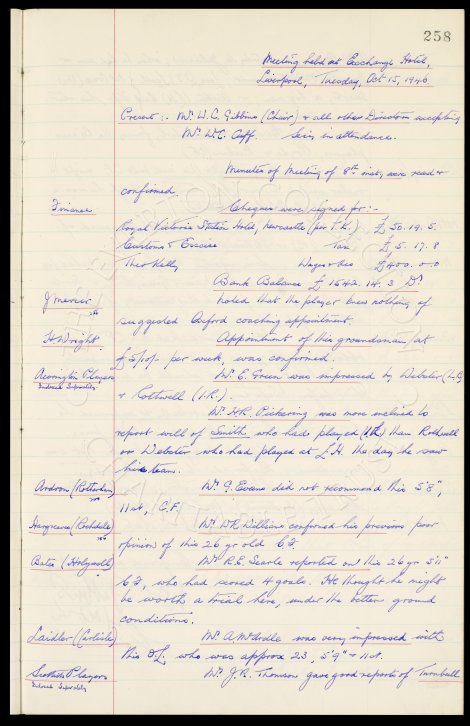 258
Meeting held at Exchange Hotel,
Liverpool, Tuesday, Oct 15, 1946
Present :- Mr. W.C. Gibbins (Chair) & all other Directors excepting
Mr. W.C. Cuff. Secy in attendance.
Minutes of Meeting of 8th inst. were read &
confirmed.
Finance Cheques were signed for :-
Royal Victoria Station Hotel, Newcastle (per T.K.) £ 50. 19. 5.
Customs & Excise Tax £ 5. 17. 8
Theo Kelly Wages &c £400. 0. 0
Bank Balance £ 1542. 14. 3 Dr
J Mercer Noted that the player knew nothing of
suggested Oxford coaching appointment.
H Wright Appointment of this groundsman, at
£5/10/- per week, was confirmed.
Accrington Players Mr. E. Green was impressed by Webster (L.H)
Indexed Separately
& Rothwell (I.R.).
Mr. H.R. Pickering was more inclined to
report well of Smith who had played (I.R.) than Rothwell
or Webster who had played at L.H. the day he saw
team.
(Rotherham) Mr. G. Evans did not recommend this 5'8",
11st, C.F.
Hargreaves (Rochdale) Mr. W.R. Williams confirmed his previous poor
opinion of this 26 yr old C.F.
Bates (Holywell) Mr. R.E. Searle reported on this 26 yr 5'11"
C.F., who had scored 4 goals. He thought he might
be worth a trial here, under the better ground
conditions.
Laidler (Carlisle) Mr. A. McArdle was very impressed with
this O.L. who was approx 23, 5'9" & 11st.
Scottish Players Mr. J.R. Thomson gave good reports of Turnbull
Indexed Separately